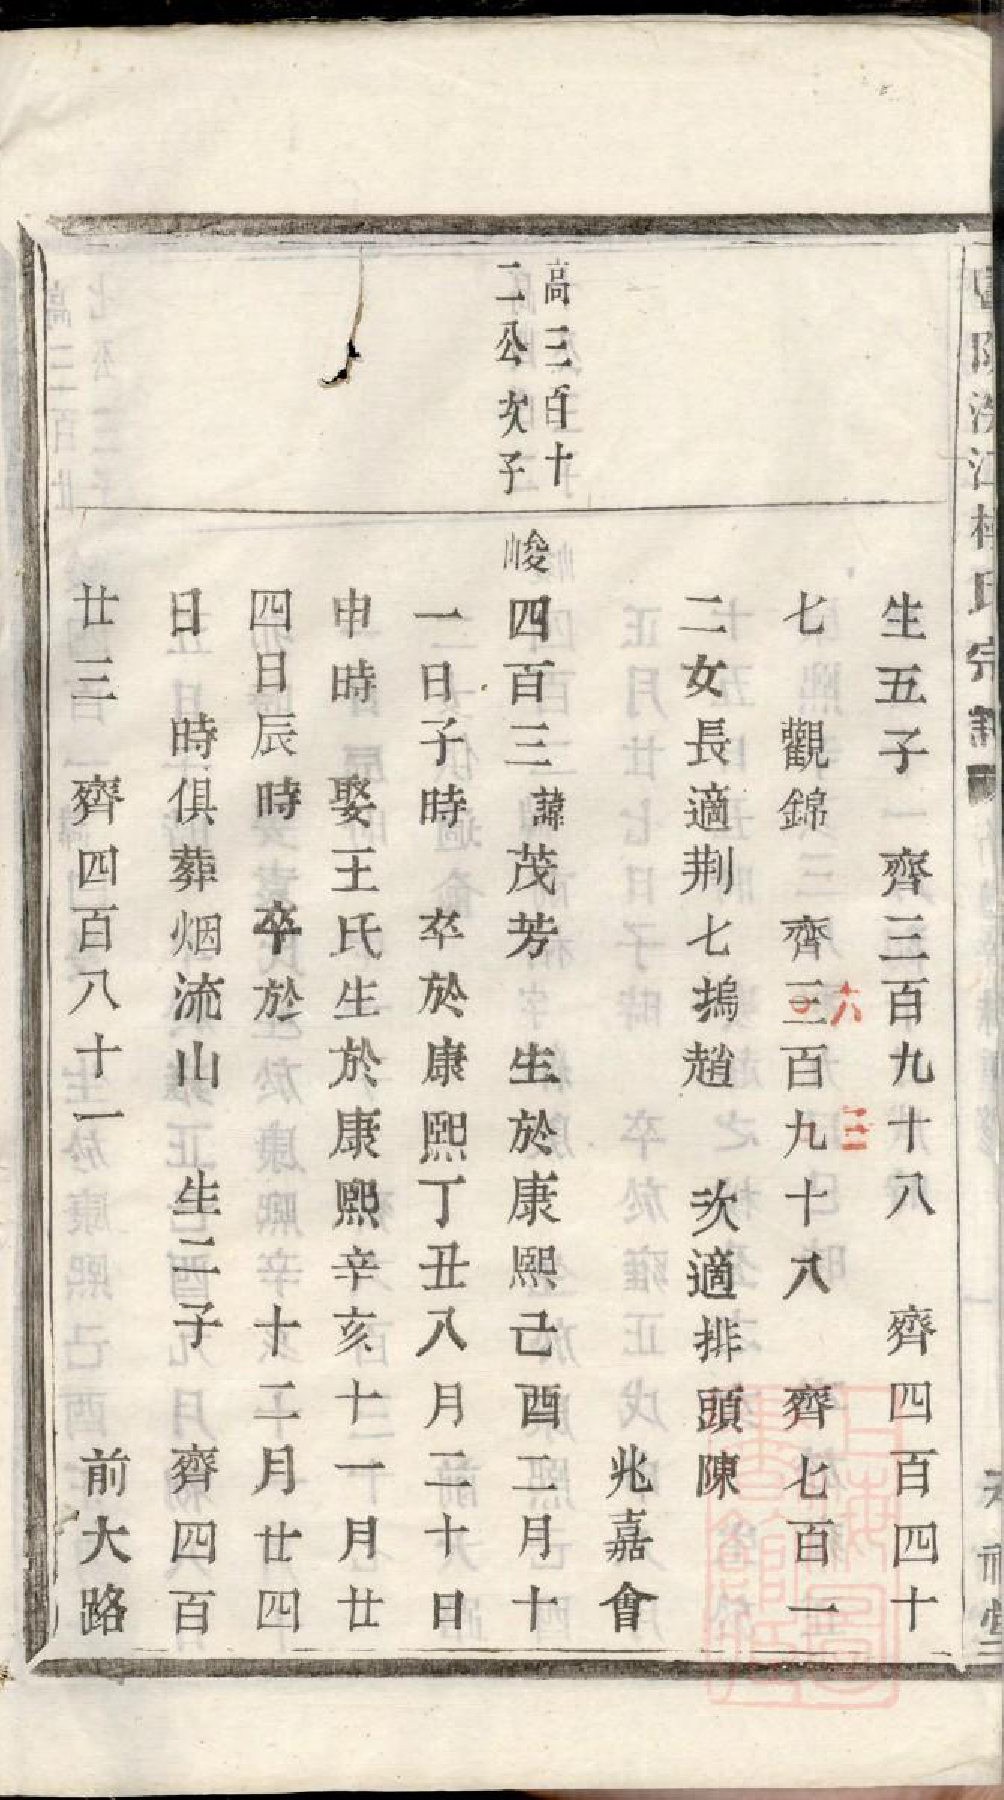 生五子 齊三百九十八 齊四百四十
七 觀錦 齊三百九十八 齊七百一
六 三
二女長適荆七塢趙 次適排頭陳
兆嘉會
高三百十
二公次子
峻四百三諱茂芳 生於康熙己酉二月十
一日子時 卒於康熙丁丑八月二十日
申時 娶王氏生於康熙辛亥十一月廿
四日辰時 卒於 十二月廿四
日 時俱葬烟流山 生二子 齊四百
廿三 齊四百八十一 前大路